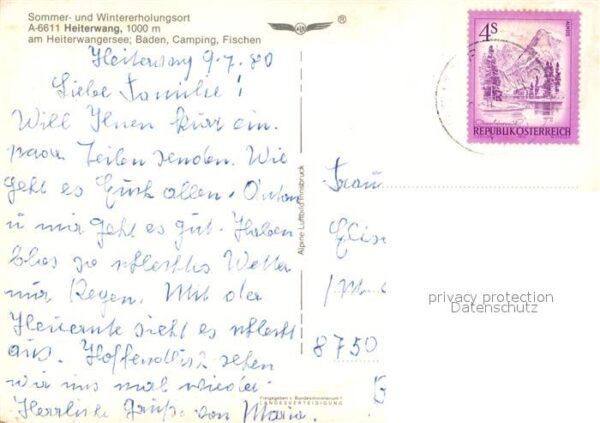 Sommer- und Wintererholungsort
A-6611 Heiterwang, 1000 m
am Heiterwangersee; Baden, Camping, Fischen
®
Heiterwang 9.7.80
Liebe Familie!
Will Ihnen kurz ein
paar Zeilen senden. Wie
geht es Euch allen.
u mir geht es gut. Haben
blos so schlechtes Wetter
nur Regen. Mit der
Heuernte sieht es schlecht
aus. Hoffendlich sehen
wir uns mal wieder
Herrliche Grüße von Maria.
Alpine Luftbild Innsbruck
Freigegeben v. Bundesministerium f.
LANDESVERTEIDIGUNG
4S
REPUBLIK ÖSTERREICH
Frau
Elise
8750
privacy protection
Datenschutz